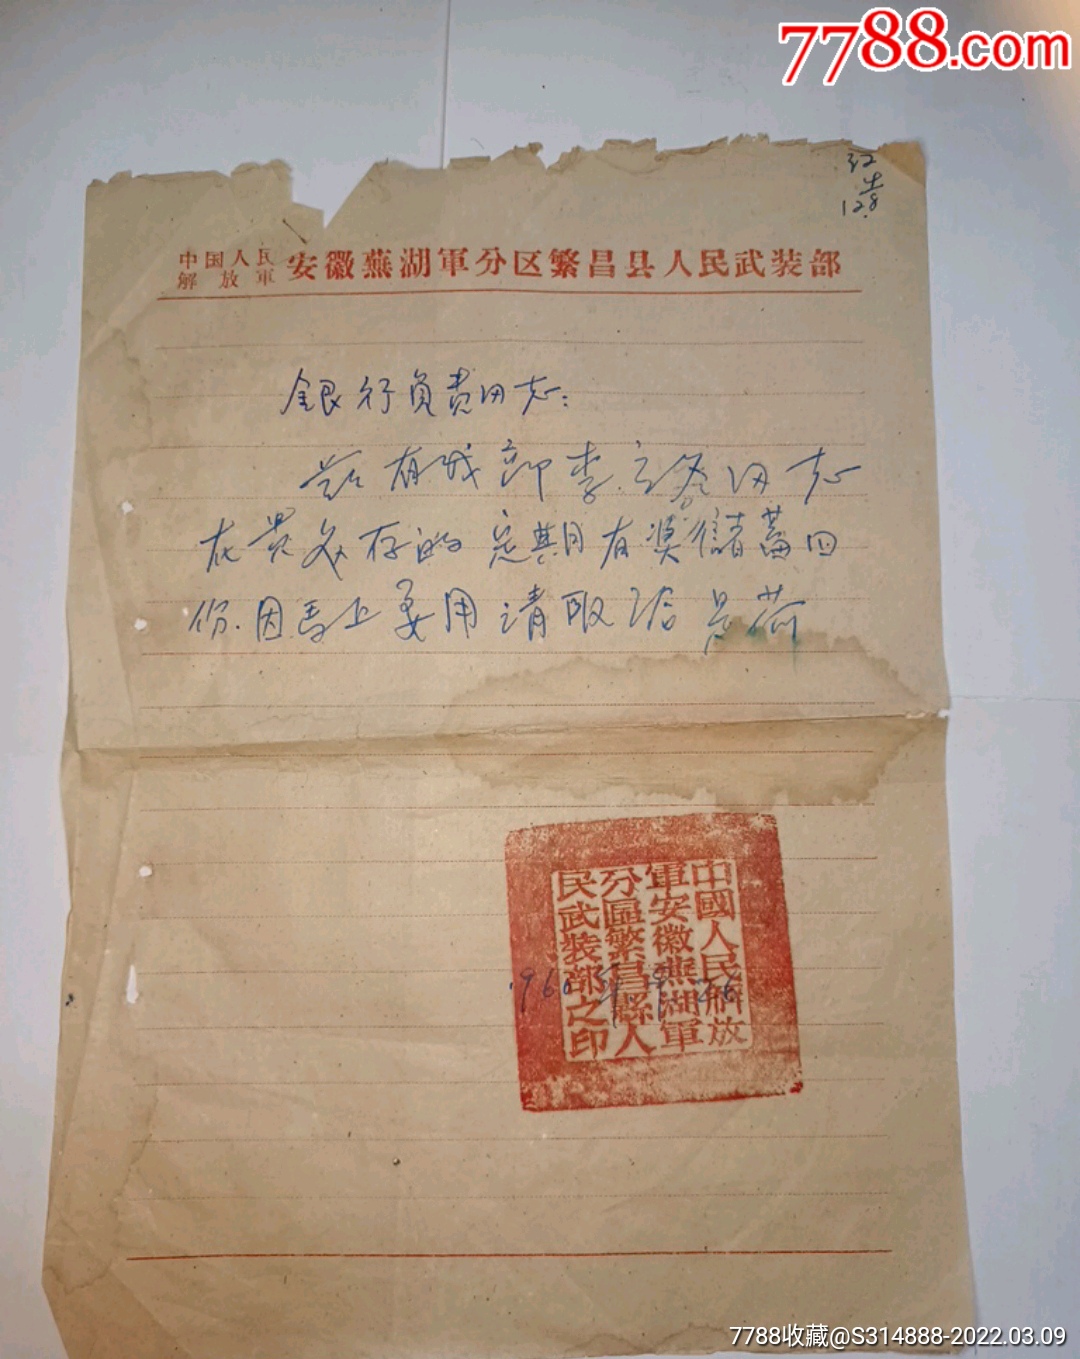 7788.com
红字
128
中国人民解放軍 安徽蕪湖軍分区繁昌县人民武装部
銀行負責同志：
兹有我部李立各同志
在贵处存的定期有奖儲蓄四
份.因马上要用请取给是荷
1960年
中國人民解放
軍安徽蕪湖軍
分區繁昌縣人
民武装部之印
7788收藏@S314888-2022.03.09